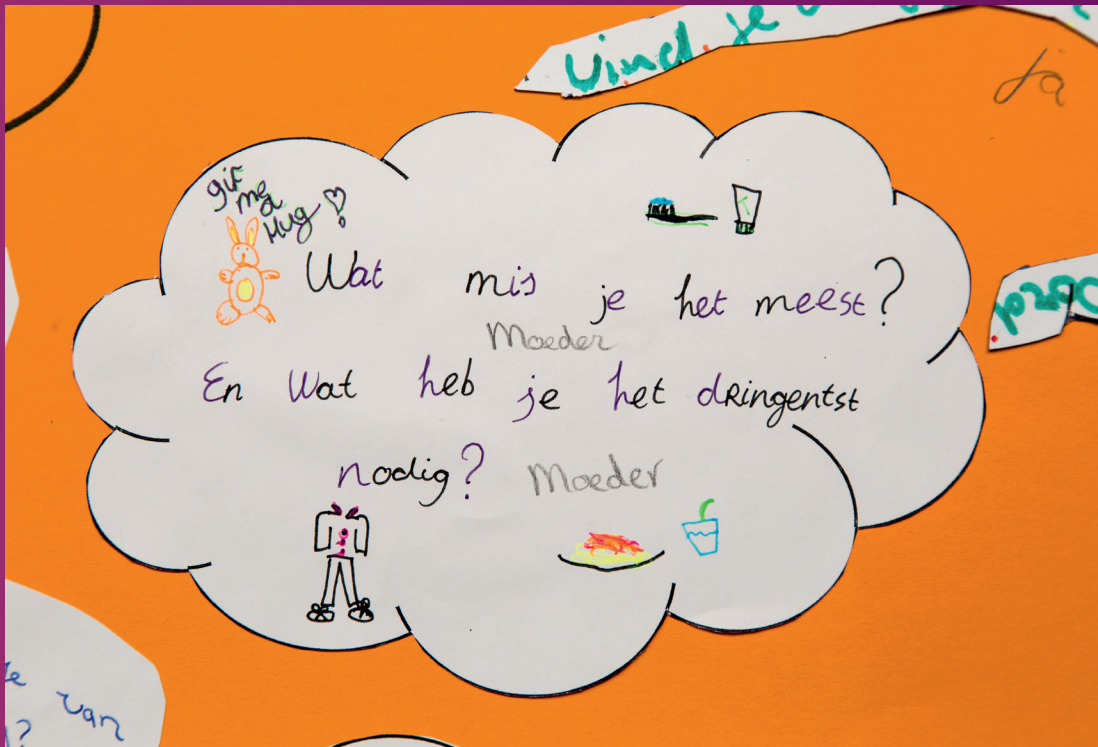 Vind je
ja
gif
me
a
Hug !
Wat mis je het meest?
Moeder
En Wat heb je het dringentst
nodig? Moeder
van